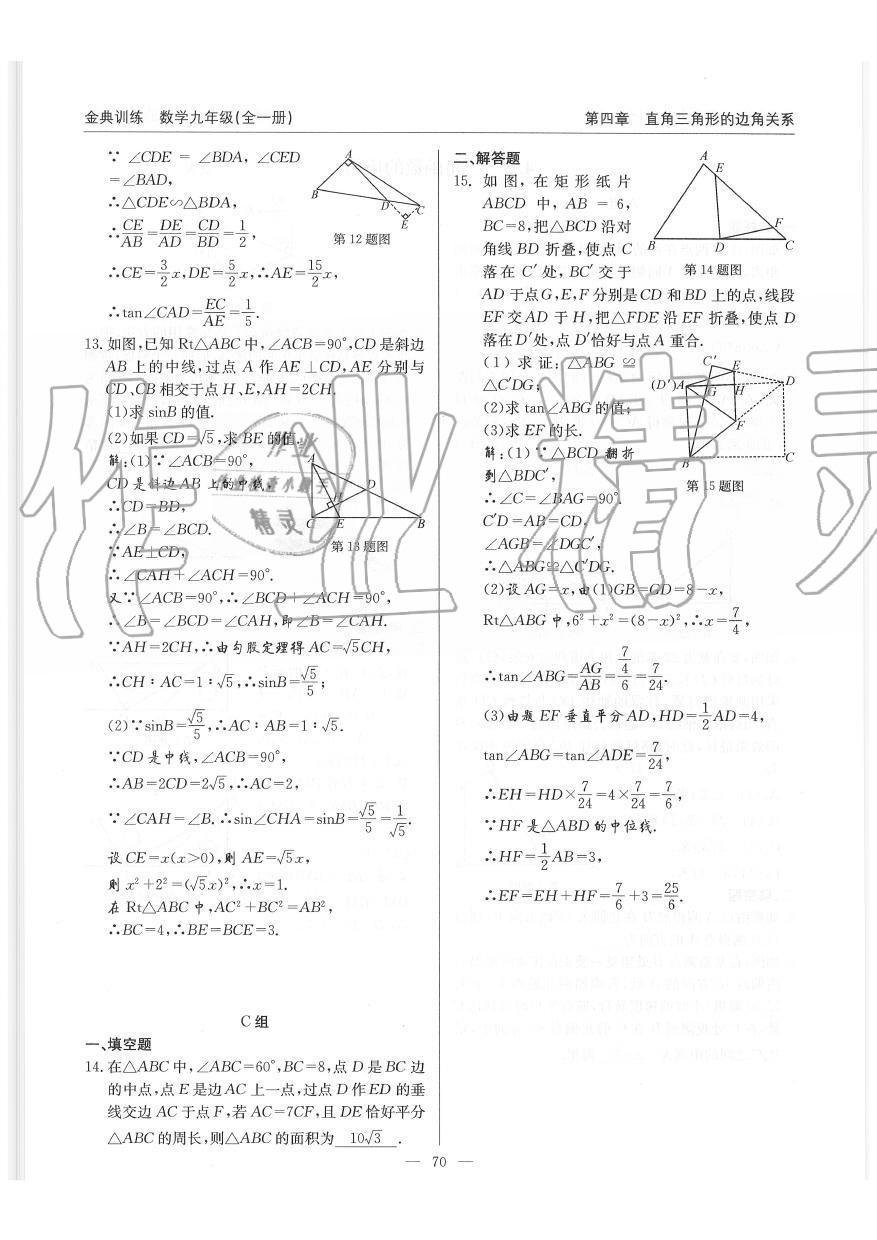 金典训练 数学九年级(全一册)
第四章 直角三角形的边角关系
∵∠CDE = ∠BDA, ∠CED
=∠BAD,
∴△CDE∽△BDA,
∴CE/AB=DE/AD=CD/BD=1/2,
∴CE=3/2x,DE=5/2x,∴AE=15/2x,
∴tan∠CAD=EC/AE=1/5.
A
B
D
C
E
第12题图
13. 如图,已知Rt△ABC中,∠ACB=90°,CD是斜边
AB上的中线,过点A作AE⊥CD,AE分别与
CD、CB相交于点H、E,AH=2CH.
(1)求sinB的值.
(2)如果CD=√5,求BE的值.
解:(1)∵∠ACB=90°,
CD是斜边AB上的中线,
∴CD=BD,
∴∠B=∠BCD.
∵AE⊥CD,
∴∠CAH+∠ACH=90°.
又∵∠ACB=90°,∴∠BCD+∠ACH=90°,
∴∠B=∠BCD=∠CAH,即∠B=∠CAH.
∵AH=2CH,∴由勾股定理得AC=√5CH,
∴CH∶AC=1∶√5,∴sinB=√5/5;
(2)∵sinB=√5/5,∴AC∶AB=1∶√5.
∵CD是中线,∠ACB=90°,
∴AB=2CD=2√5,∴AC=2,
∵∠CAH=∠B.∴sin∠CHA=sinB=√5/5=1/√5.
设CE=x(x>0),则AE=√5x,
则x²+2²=(√5x)²,∴x=1.
在Rt△ABC中,AC²+BC²=AB²,
∴BC=4,∴BE=BCE=3.
A
D
H
C
E
B
第13题图
C组
一、填空题
14. 在△ABC中,∠ABC=60°,BC=8,点D是BC边
的中点,点E是边AC上一点,过点D作ED的垂
线交边AC于点F,若AC=7CF,且DE恰好平分
△ABC的周长,则△ABC的面积为 10√3 .
二、解答题
15. 如图,在矩形纸片
ABCD中,AB=6,
BC=8,把△BCD沿对
角线BD折叠,使点C
落在C′处,BC′交于
AD于点G,E,F分别是CD和BD上的点,线段
EF交AD于H,把△FDE沿EF折叠,使点D
落在D′处,点D′恰好与点A重合.
(1)求证:△ABG≌
△C′DG;
(2)求tan∠ABG的值;
(3)求EF的长.
解:(1)∵△BCD翻折
到△BDC′,
∴∠C=∠BAG=90°.
C′D=AB=CD,
∠AGB=∠DGC′,
∴△ABG≌△C′DG.
(2)设AG=x,由(1)GB=GD=8-x,
Rt△ABG中,6²+x²=(8-x)²,∴x=7/4,
∴tan∠ABG=AG/AB=(7/4)/6=7/24.
(3)由题EF垂直平分AD,HD=1/2AD=4,
tan∠ABG=tan∠ADE=7/24,
∴EH=HD×7/24=4×7/24=7/6,
∵HF是△ABD的中位线.
∴HF=1/2AB=3,
∴EF=EH+HF=7/6+3=25/6.
A
E
F
B
D
C
第14题图
C′
E
(D′)A
G
H
D
F
B
C
第15题图
作业精灵
— 70 —